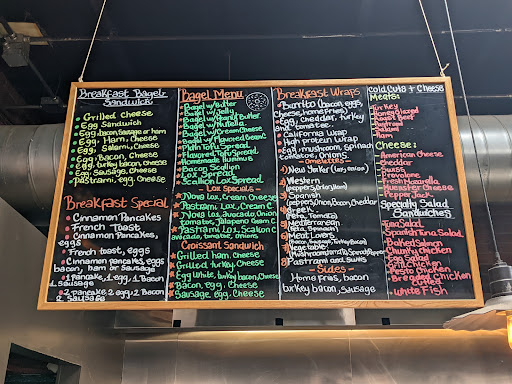 Breakfast Bagels
Sandwich
Grilled cheese
Egg Sandwich
Egg, bacon Sausage or ham
Egg, Ham, Cheese
Egg, Salami, Cheese
Egg, Bacon, Cheese
Egg, turkey bacon, cheese
Egg, Sausage, Cheese
Pastrami, egg, Cheese
Breakfast Special
Cinnamon Pancakes
French Toast
Cinnamon Pancakes,
eggs
French toast, eggs
Cinnamon pancakes, eggs
bacon, ham or Sausage
1 pancake, 1 egg, 1 Bacon
1 Sausage
2 pancake, 2 egg, 2 Bacon
2 Sausage
Bagel Menu
Bagel w/Butter
Bagel w/Jelly
Bagel w/Peanut Butter
Bagel w/Nutella
Bagel w/Cream Cheese
Bagel w/Flavored Cream C.
Plain Tofu Spread
Flavored Tofu Spread
Homemade Hummus
Bacon Scallion
Lox Spread
Scallion Lox Spread
- Lox Specials -
Nova Lox, Cream Cheese
Pastrami Lox, Cream C.
Nova Lox, Avocado, Onion
tomatoes, Jalapeno Cream C.
Pastrami Lox, Scallion C
avocado, tomato, onions
Croissant Sandwich
Grilled ham, cheese
Grilled turkey, Cheese
Egg White, turkey bacon, Cheese
Bacon, egg, Cheese
Sausage, egg, Cheese
Breakfast Wraps
Burrito (bacon, eggs
Cheese, home fries)
Egg, Cheddar, turkey
and tomatoe.
California Wrap
High protein Wrap
Egg, mushroom, spinach
tomatoe, Onions.
- Omelettes -
1) New Yorker (lox, onion)
2) Western
(peppers, Onion, ham)
3) Spanish
(peppers, Onion, Bacon, Cheddar
4) Greek
(Feta, Tomato)
5) Mediterranean
(Feta, Spinach)
6) Meat Lovers
(Bacon, Sausage, Turkey Bacon)
7) Vegetable
8) Pastrami and Swiss
- Sides -
Home fries, bacon
turkey bacon, Sausage
Cold Cuts + Cheese
Meats:
Turkey
Roast Beef
Pastrami
Salami
Ham
Cheese:
American Cheese
Cheddar
Swiss
Provolone
Fresh Mozarella
Muenster Cheese
Pepper Jack
Specialty Salad
Sandwiches
Tuna Salad
Spanish Tuna Salad
Baked Salmon
Chunky Chicken
Egg Salad
Grill Chicken
Pesto Chicken
Breaded Chicken
Cutlet
White Fish